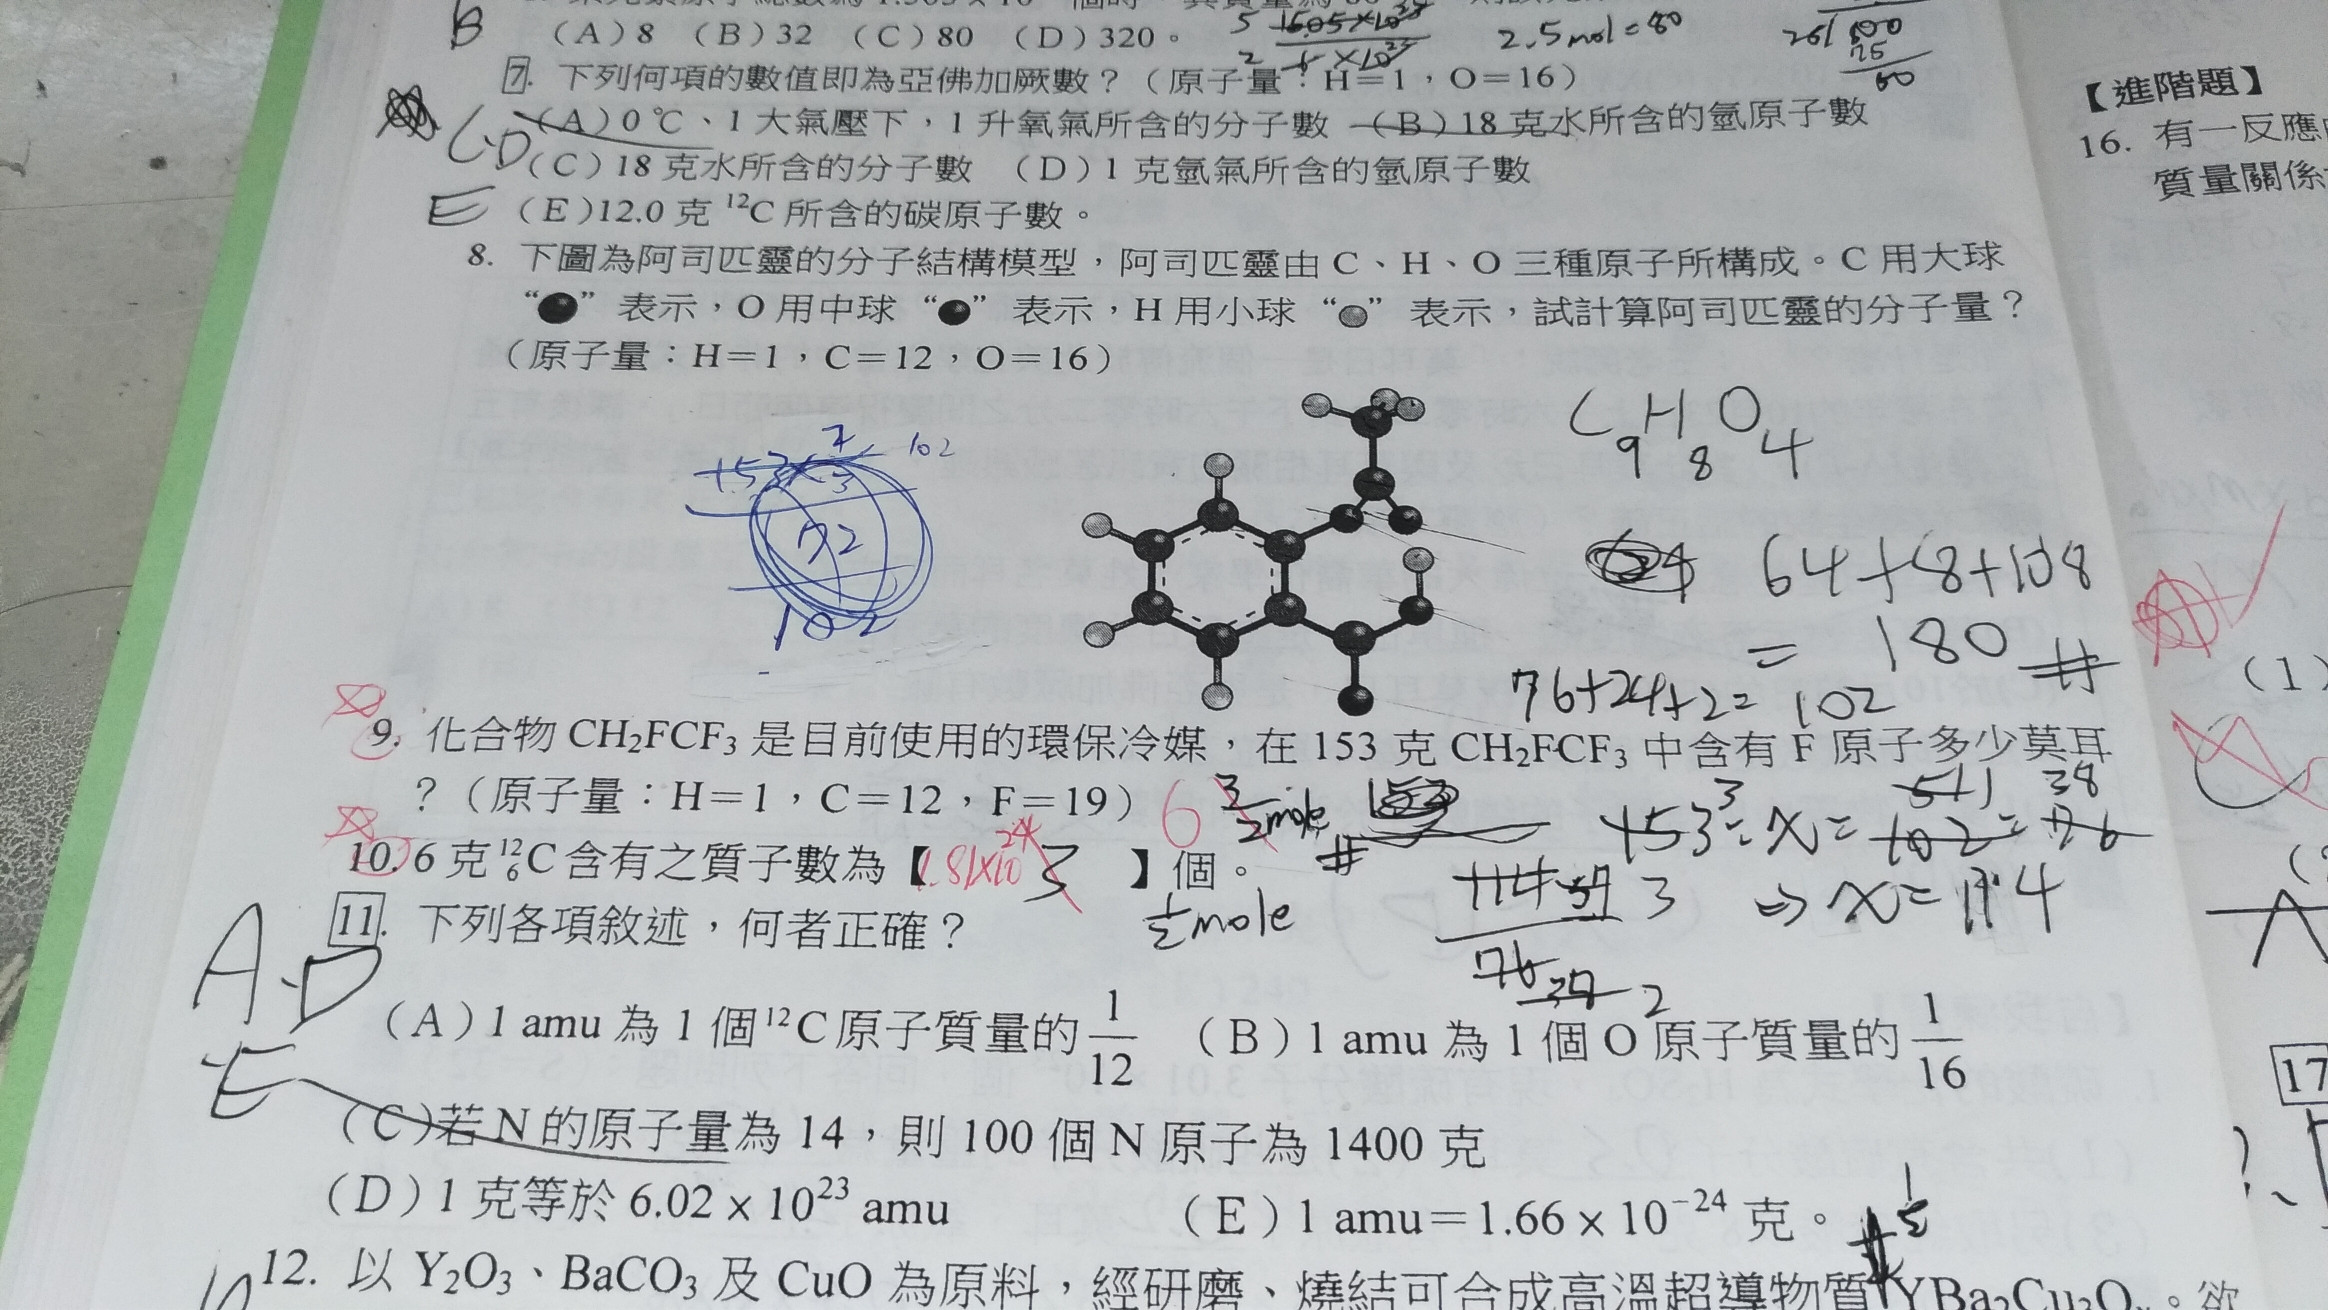 B
(A)8 (B)32 (C)80 (D)320。
2.5mol=80
7. 下列何項的數值即為亞佛加厥數？（原子量：H＝1，O＝16）
(A)0℃、1大氣壓下，1升氧氣所含的分子數 (B)18克水所含的氫原子數
C.D
(C)18克水所含的分子數 (D)1克氫氣所含的氫原子數
E
(E)12.0克 ¹²C 所含的碳原子數。
8. 下圖為阿司匹靈的分子結構模型，阿司匹靈由 C、H、O 三種原子所構成。C 用大球
“ ” 表示，O 用中球 “ ” 表示，H 用小球 “ ” 表示，試計算阿司匹靈的分子量？
（原子量：H＝1，C＝12，O＝16）
C₉H₈O₄
92
102
64+8+108
= 180 #
76+24+2=102
9. 化合物 CH₂FCF₃ 是目前使用的環保冷媒，在 153 克 CH₂FCF₃ 中含有 F 原子多少莫耳
？（原子量：H＝1，C＝12，F＝19）6 3/2 mole #
153:x=102=76
⇒ x=114
10. 6 克 ¹²₆C 含有之質子數為【1.81×10²⁴ 3 】個。
1/2 mole
11. 下列各項敘述，何者正確？
A.D
E
(A)1 amu 為 1 個 ¹²C 原子質量的 1/12 (B)1 amu 為 1 個 O 原子質量的 1/16
(C)若 N 的原子量為 14，則 100 個 N 原子為 1400 克
(D)1 克等於 6.02×10²³ amu (E)1 amu＝1.66×10⁻²⁴ 克。
12. 以 Y₂O₃、BaCO₃ 及 CuO 為原料，經研磨、燒結可合成高溫超導物質 YBa₂Cu₃Oₓ。欲
【進階題】
16. 有一反應
質量關係
(1)
17